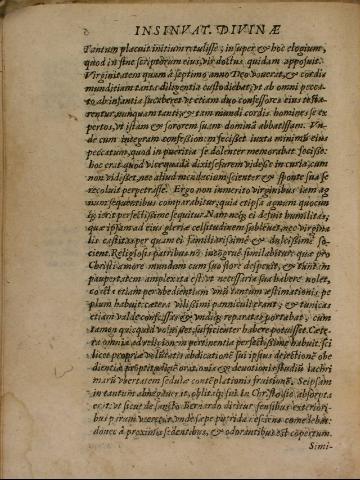 INSINVAT. DIVINÆ
Tantum placuit initium retulisse, insuper & hoc elogium,
quod in fine scriptorum eius, vir doctus quidam apposuit.
Virginitatem quam à septimo anno Deo vouerat, & cordis
munditiam tanta diligentia custodiebat, vt ab omni pecca-
to ab infantia sic
rentur, nunquam tantis, & tam mundi cordis homines se ex
pertos, vt istam & sororem suam dominā abbatissam. Vn-
de cum integram confessionem fecisset iuxta minimū eius
peccatum, quod in pueritia se dolenter memorabat fecisse:
hoc erat quod vice quadā dixit se furem vidisse in curia, cum
non vidisset, nec aliud mendacium scienter & sponte sua se
recoluit perpetrasse. Ergo non immerito virginibus iam ag
num sequentibus comparabitur, quia et ipsa agnum quocun
q; ierit perfectissime sequitur. Nam neq; ei defuit humilitas,
quæ ipsam ad eius gloriæ celsitudinem subleuet, nec virgina
lis castitas, per quam ei familiarissime & dulcissime so-
cient. Religiosis patribus nō incongrue similabitur quæ pro
Christi amore mundum cum suo flore despexit, & tantam
paupertatem amplexata est, vt necessaria sua habere nollet,
etiam per obedientiam
plum habuit. cætera vilissimi panniculi erant, & tunicas
etiam valde confissas & vndiq; reparatas portabat, cum
tamen quicquid voluisset, sufficienter habere potuisset. Cæte
ra omnia ad religionem pertinentia perfectissime habuit. sci
licet propriæ volūtatis abdicationē sui ipsius deiectionē obe
dientiæ orationis & deuotionis studiū lachri
marū vbertatem sedulæ contēplationis fruitionē. Seipsam
in tantum abnegauerat, in Christo sic absorpta
erat, vt sicut de sancto Bernardo dicitur sensibus exteriori-
bus parum vteretur, vnde sæpe putrida comedebat,
donec à proximis sedentibus, & odorantibus est copertum.
Simi-